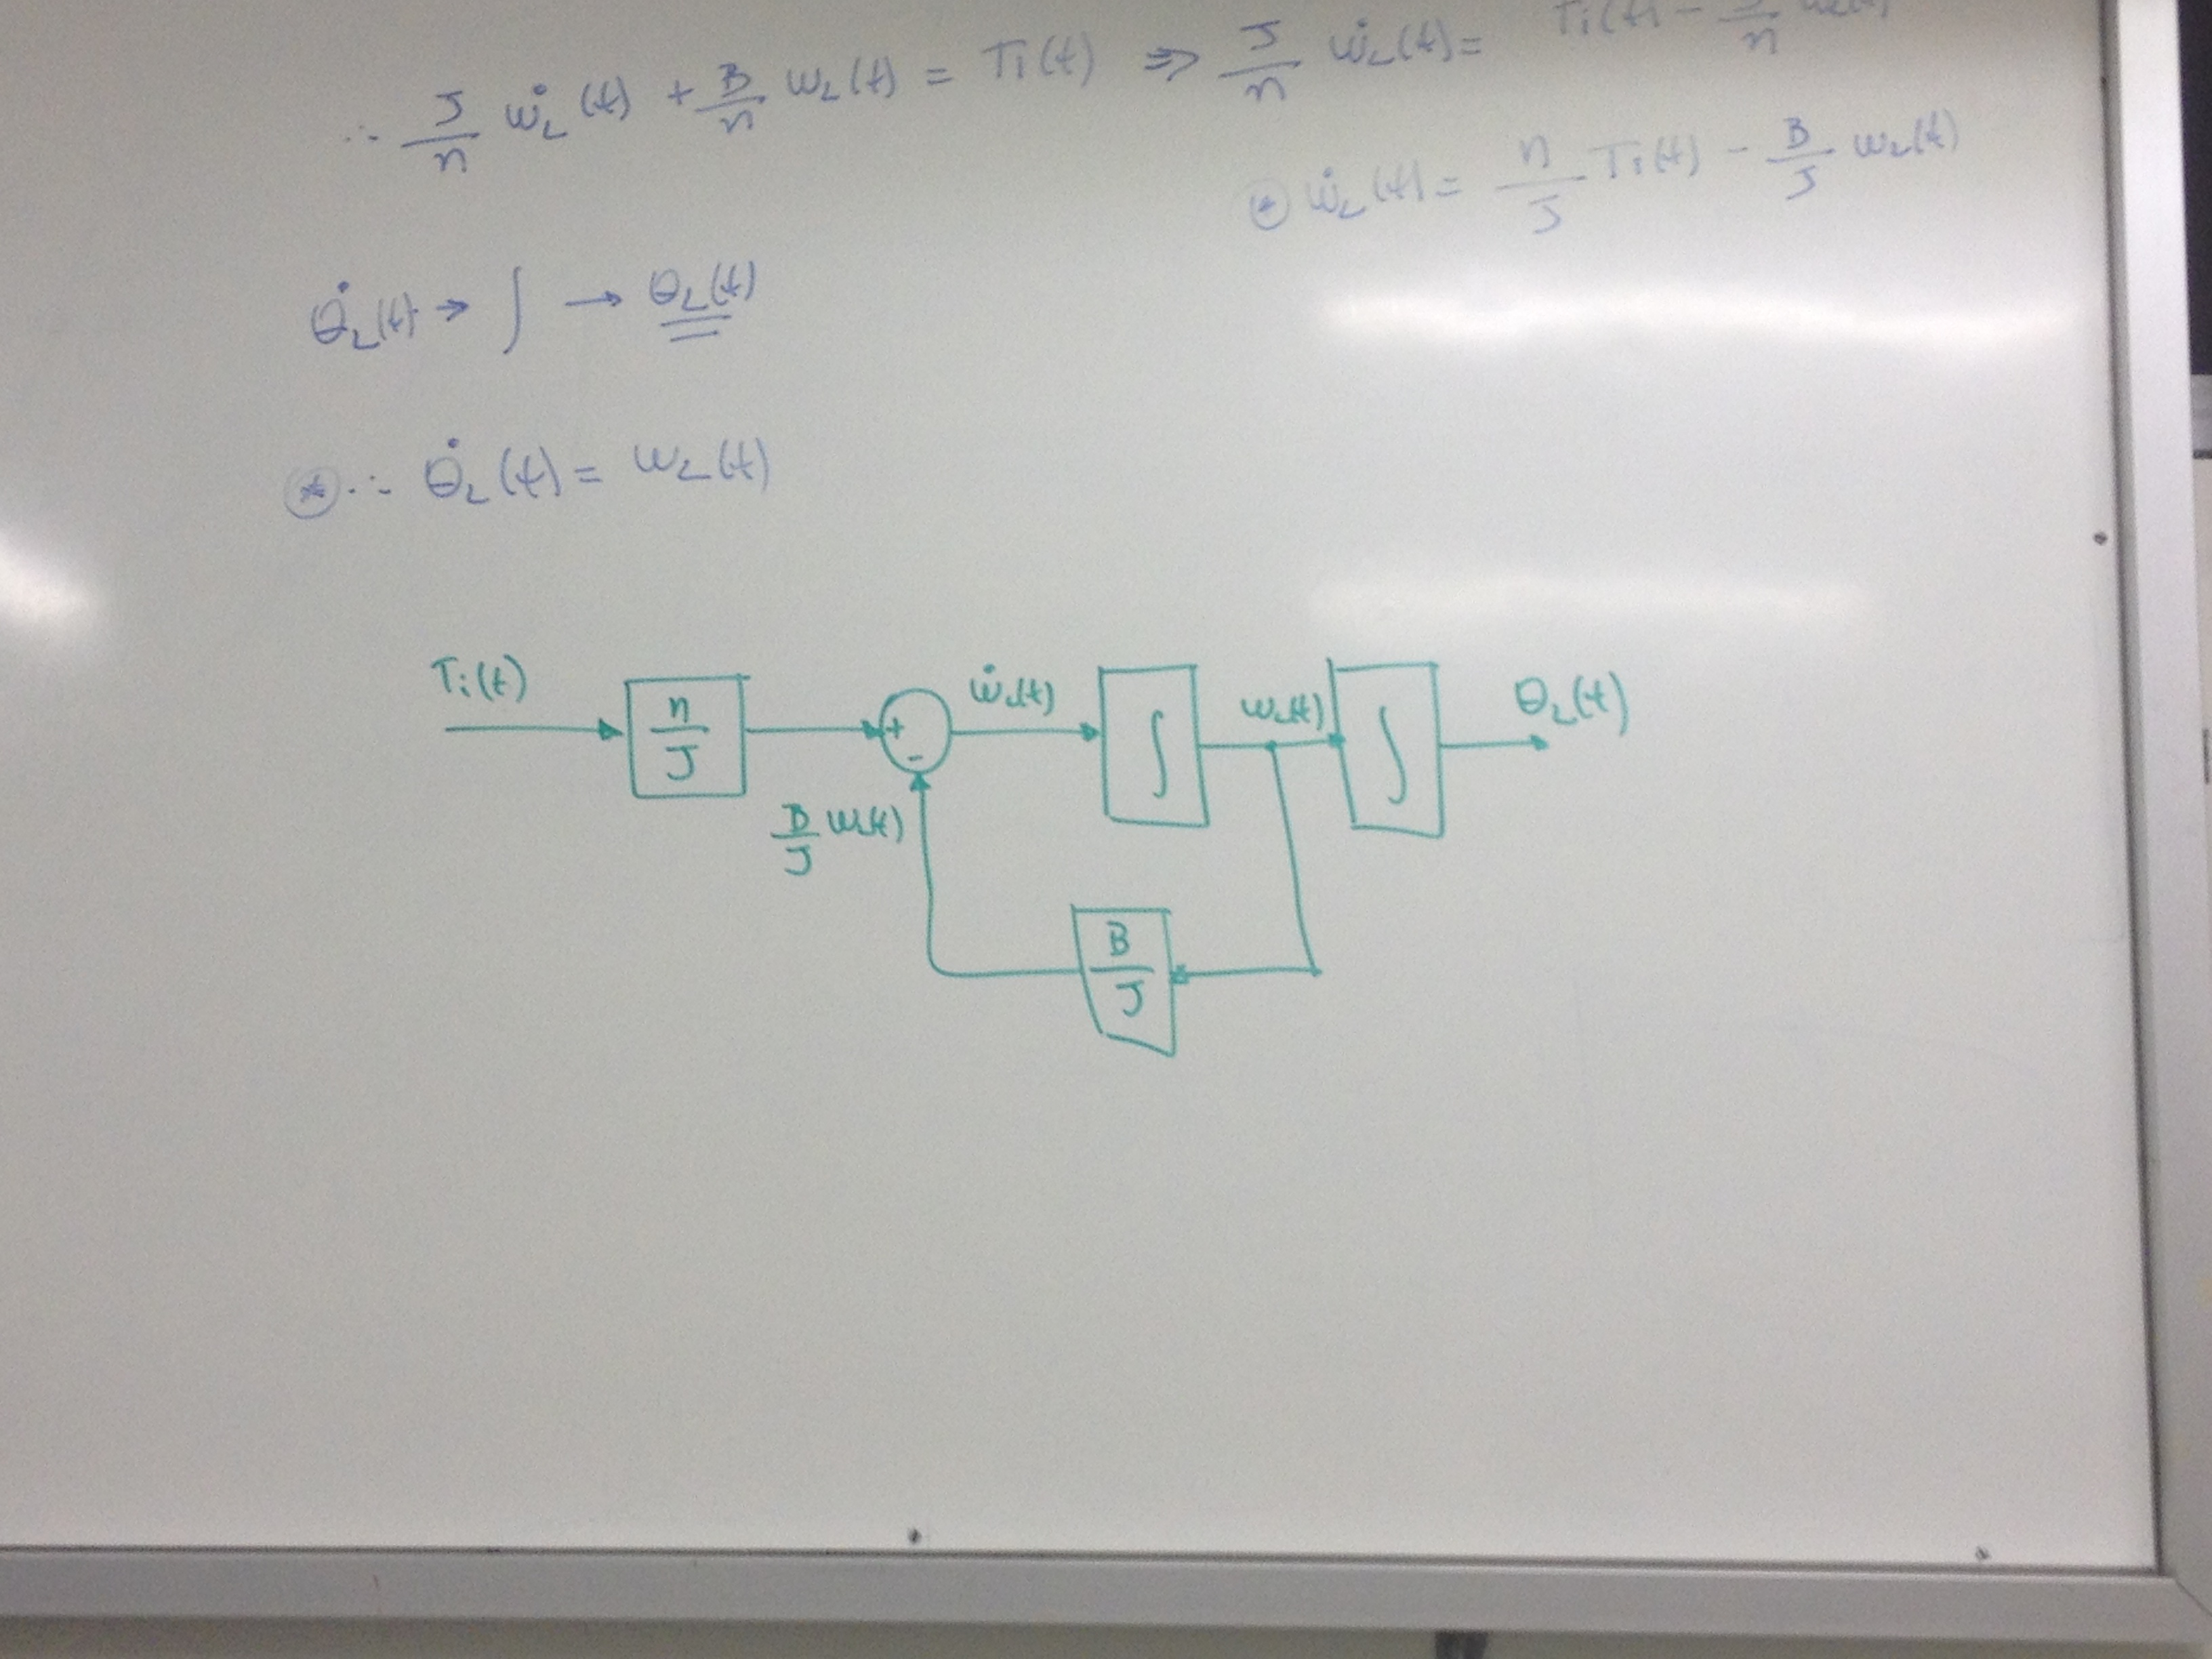 ∴ J/n ω̇_L(t) + B/n ω_L(t) = Ti(t) ⇒ J/n ω̇_L(t) = Ti(t) - /n ω_L(t)
⊛ ω̇_L(t) = n/J Ti(t) - B/J ω_L(t)
θ̇_L(t) → ∫ → θ_L(t)
⊛ ∴ θ̇_L(t) = ω_L(t)
Ti(t) n/J + - ω̇_L(t) ∫ ω_L(t) ∫ θ_L(t)
B/J ω_L(t)
B/J